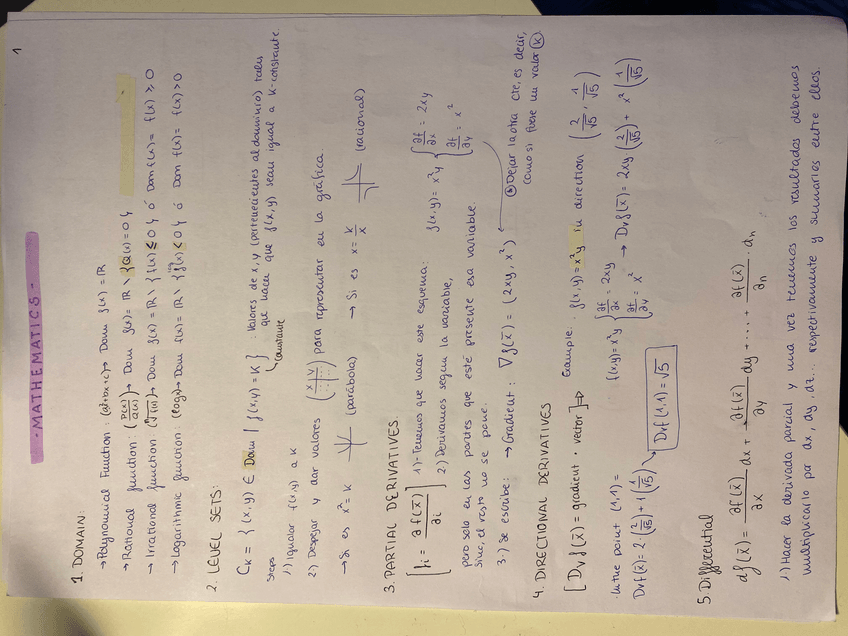 1
- MATHEMATICS -
1. DOMAIN:
→ Polynomial Function: (ax²+bx+c) → Dom f(x) = ℝ
→ Rational function: (P(x)/Q(x)) → Dom f(x) = ℝ \ {Q(x) = 0}
→ Irrational function (ⁿ√f(x)) → Dom f(x) = ℝ \ {f(x) ≤ 0} ó Dom f(x) = f(x) ≥ 0
→ Logarithmic function: (log x) → Dom f(x) = ℝ \ {f(x) < 0} ó Dom f(x) = f(x) > 0
2. LEVEL SETS:
Cₖ = {(x,y) ∈ Dom / f(x,y) = K} : Valores de x, y (pertenecientes al dominio) tales
que hacen que f(x,y) sean igual a K-constante
constante
Steps
1) Igualar f(x,y) a K
2) Despejar y dar valores (x y) para representar en la gráfica.
→ Si es x² = K (parábola) → Si es x = K/x (racional)
3. PARTIAL DERIVATIVES.
[fᵢ = ∂f(x̄)/∂i] 1)- Tenemos que hacer este esquema: f(x,y) = x²y { ∂f/∂x = 2xy
∂f/∂y = x²
2) Derivamos según la variable,
pero solo en las partes que esté presente esa variable.
Sino, el resto no se pone.
3-) Se escribe: → Gradient: ∇f(x̄) = (2xy, x²)
Dejar la otra cte, es decir,
como si fuese un valor (K).
4. DIRECTIONAL DERIVATIVES
[Dᵥf(x̄) = gradient · vector] ⇒ Example: f(x,y) = x²y in direction (2/√5, 1/√5)
f(x,y) = x²y { ∂f/∂x = 2xy
∂f/∂y = x² → Dvf(x̄) = 2xy (2/√5) + x² (1/√5)
· In the point (1,1) =
Dvf(x̄) = 2·(2/√5) + 1(1/√5) → Dvf(1,1) = √5
5. Differential
df(x̄) = ∂f(x̄)/∂x dx + ∂f(x̄)/∂y dy + ... + ∂f(x̄)/∂n · dn
1) Hacer la derivada parcial y una vez tenemos los resultados debemos
multiplicarlo por dx, dy, dz... respectivamente y sumarlos entre ellos.